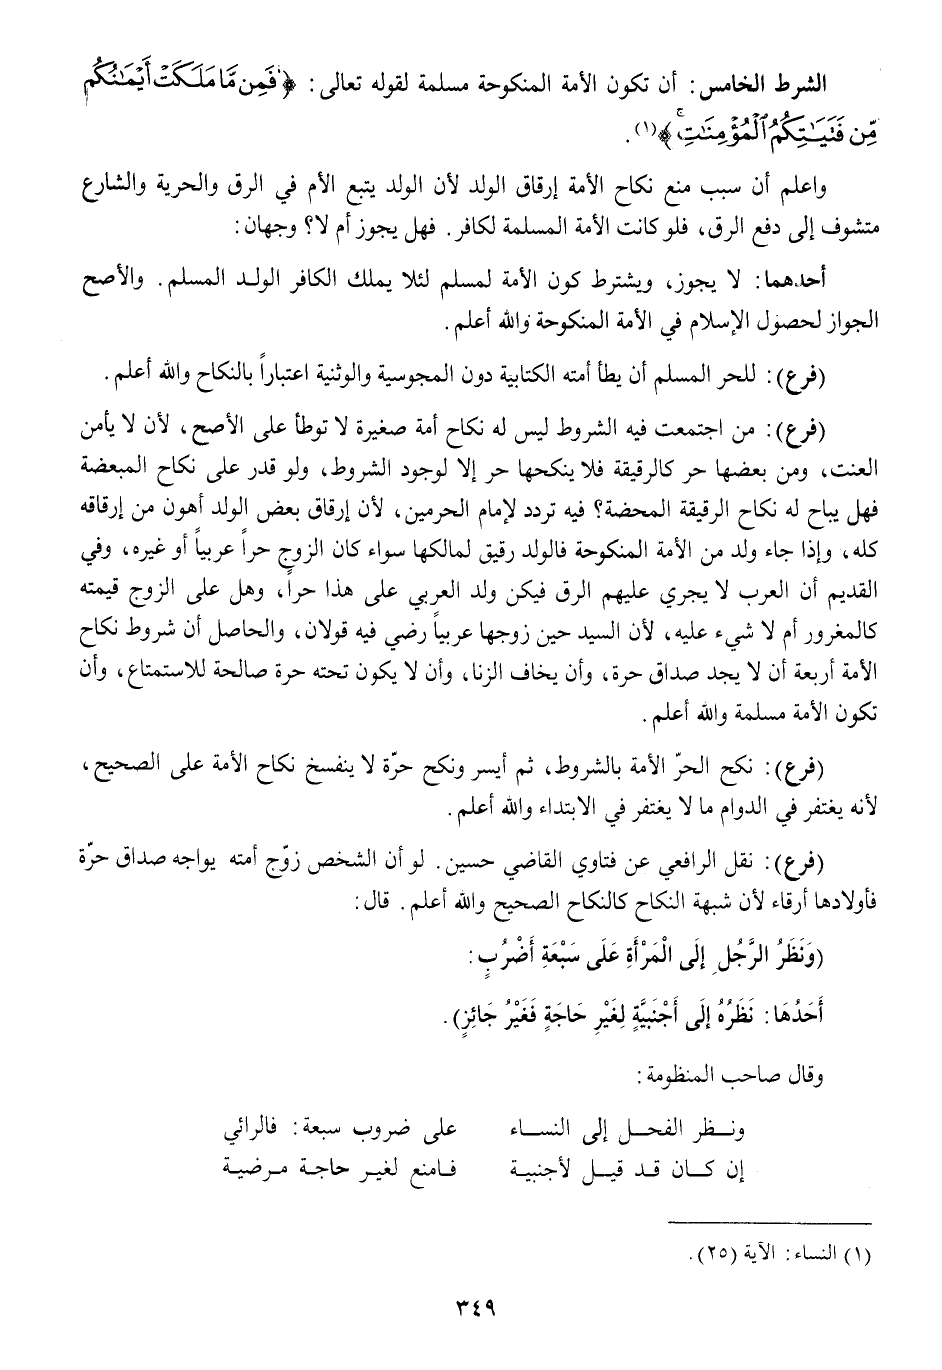 الشرط الخامس: أن تكون الأمة المنكوحة مسلمة لقوله تعالى: ﴿فَمِن مَّا مَلَكَتْ أَيْمَـٰنُكُم
مِّن فَتَيَـٰتِكُمُ الْمُؤْمِنَـٰتِ﴾(١).
واعلم أن سبب منع نكاح الأمة إرقاق الولد لأن الولد يتبع الأم في الرق والحرية والشارع
متشوف إلى دفع الرق، فلو كانت الأمة المسلمة لكافر. فهل يجوز أم لا؟ وجهان:
أحدهما: لا يجوز، ويشترط كون الأمة لمسلم لئلا يملك الكافر الولد المسلم. والأصح
الجواز لحصول الإسلام في الأمة المنكوحة والله أعلم.
(فرع): للحر المسلم أن يطأ أمته الكتابية دون المجوسية والوثنية اعتباراً بالنكاح والله أعلم.
(فرع): من اجتمعت فيه الشروط ليس له نكاح أمة صغيرة لا توطأ على الأصح، لأن لا يأمن
العنت، ومن بعضها حر كالرقيقة فلا ينكحها حر إلا لوجود الشروط، ولو قدر على نكاح المبعضة
فهل يباح له نكاح الرقيقة المحضة؟ فيه تردد لإمام الحرمين، لأن إرقاق بعض الولد أهون من إرقاقه
كله، وإذا جاء ولد من الأمة المنكوحة فالولد رقيق لمالكها سواء كان الزوج حراً عربياً أو غيره، وفي
القديم أن العرب لا يجري عليهم الرق فيكن ولد العربي على هذا حراً، وهل على الزوج قيمته
كالمغرور أم لا شيء عليه، لأن السيد حين زوجها عربياً رضي فيه قولان، والحاصل أن شروط نكاح
الأمة أربعة أن لا يجد صداق حرة، وأن يخاف الزنا، وأن لا يكون تحته حرة صالحة للاستمتاع، وأن
تكون الأمة مسلمة والله أعلم.
(فرع): نكح الحرّ الأمة بالشروط، ثم أيسر ونكح حرّة لا ينفسخ نكاح الأمة على الصحيح،
لأنه يغتفر في الدوام ما لا يغتفر في الابتداء والله أعلم.
(فرع): نقل الرافعي عن فتاوي القاضي حسين. لو أن الشخص زوّج أمته يواجه صداق حرّة
فأولادها أرقاء لأن شبهة النكاح كالنكاح الصحيح والله أعلم. قال:
(وَنَظَرُ الرَّجُلِ إِلَى الْمَرْأَةِ عَلَى سَبْعَةِ أَضْرُبٍ:
أَحَدُهَا: نَظَرُهُ إِلَى أَجْنَبِيَّةٍ لِغَيْرِ حَاجَةٍ فَغَيْرُ جَائِزٍ).
وقال صاحب المنظومة:
ونـظر الفحـل إلى النسـاء على ضروب سبعة: فالرائي
إن كـان قـد قيـل لأجنبيـة فـامنع لغيـر حاجـة مـرضيـة
(١) النساء: الآية (٢٥).
٣٤٩